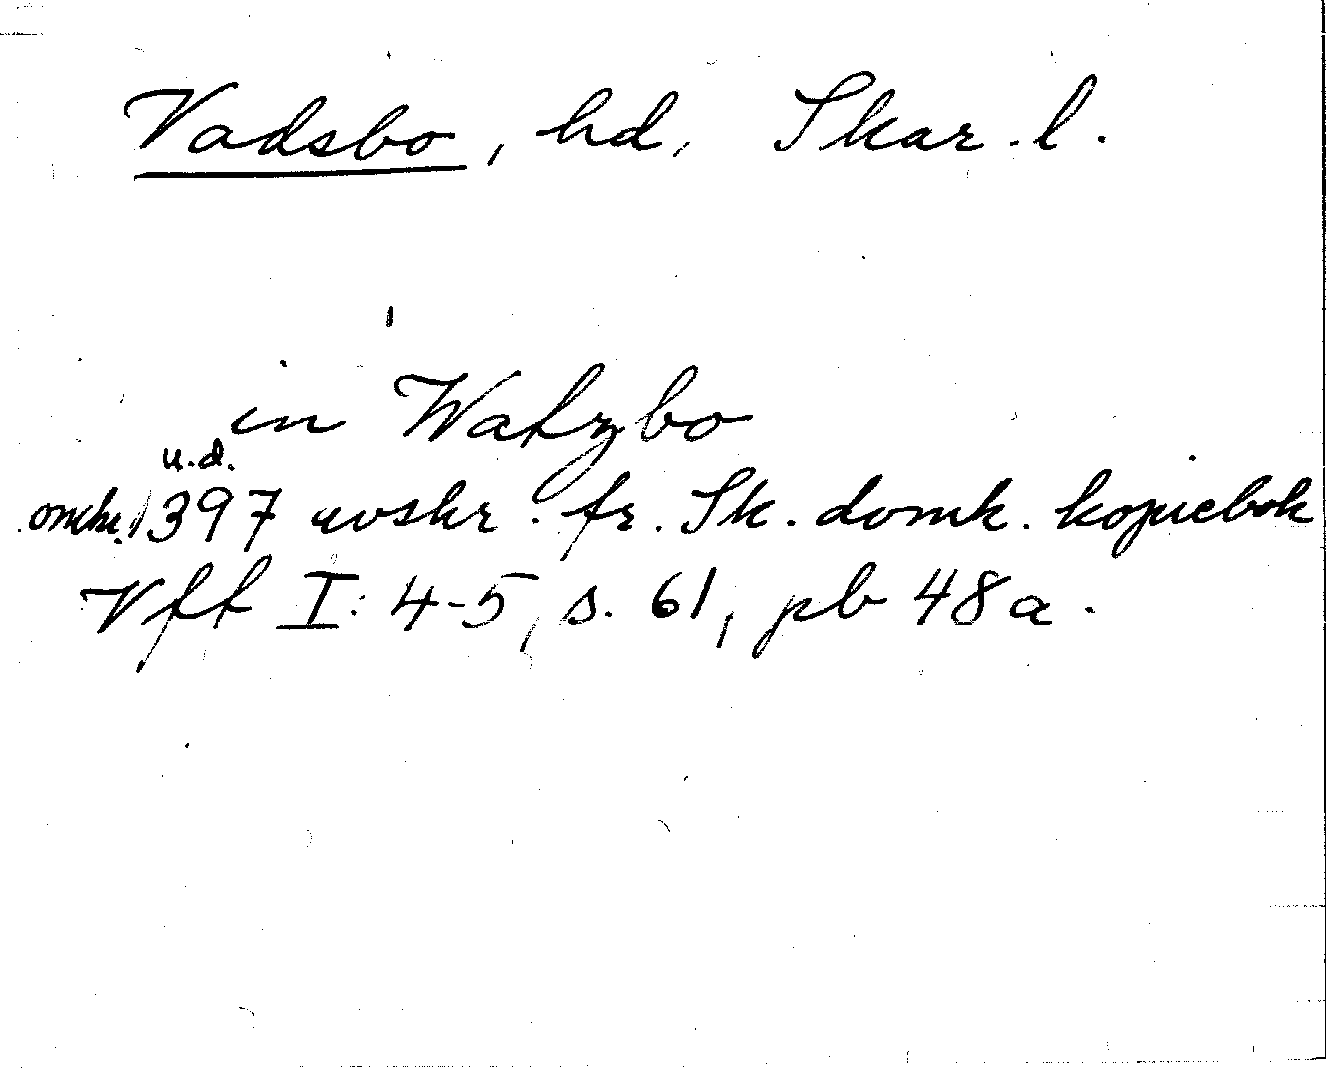 Vadsbo, hd, Skar. l.
in Watzbo
u.d.
omkr. 1397 avskr. fr. Sk. domk. kopiebok
Vfft I: 4-5, s. 61, pb 48a.